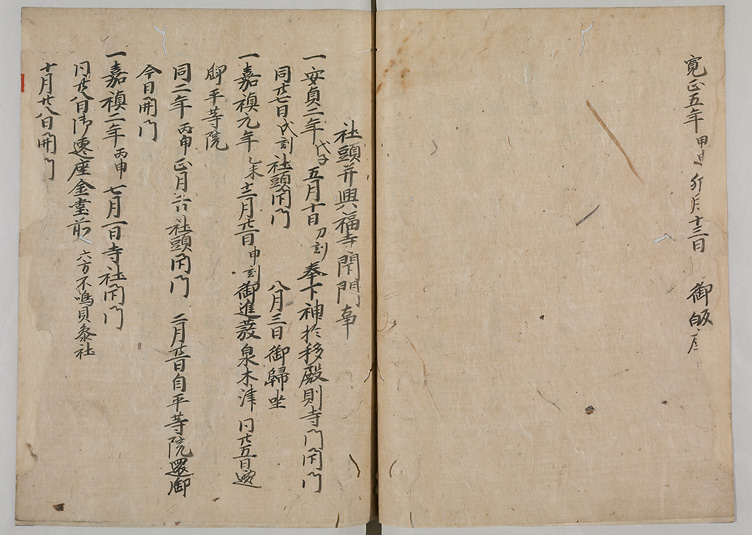 寛正五年甲申 卯月十三日 御皈座
社頭并興福寺閇門事
一安貞二年戊子 五月十日 刀刻 奉下神於移殿則寺門閇門
同廿七日戌刻社頭閇門 八月三日御歸坐
一嘉禎元年乙未十二月廿一日申刻御進發泉木津 同廿五日遷
御平等院
同二年丙申正月 社頭閇門 二月廿一日自平等院還御
今日開門
一嘉禎二年丙申 七月一日寺社閇門
同廿八日御遷座金堂前 六方不鳴貝参社
十月廿八日開門